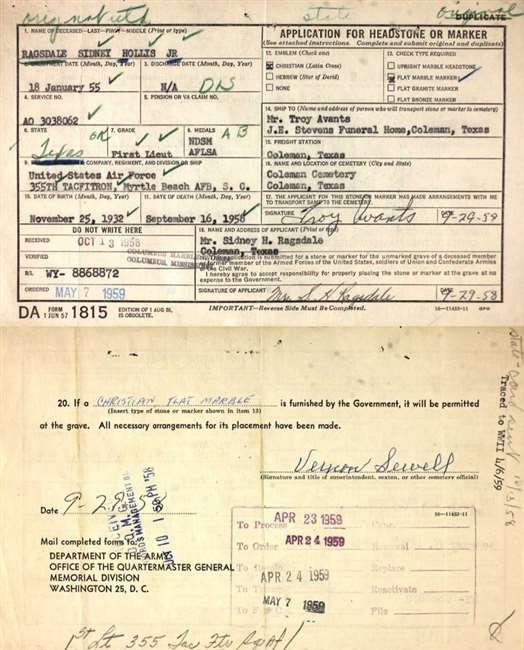 original
state
original
DUPLICATE
1. NAME OF DECEASED—LAST—FIRST—MIDDLE (Print or type)
RAGSDALE SIDNEY HOLLIS JR
APPLICATION FOR HEADSTONE OR MARKER
(See attached instructions. Complete and submit original and duplicate)
2. ENLISTMENT DATE (Month, Day, Year)
3. DISCHARGE DATE (Month, Day, Year)
18 January 55
N/A
DIS
12. EMBLEM (Check one)
CHRISTIAN (Latin Cross)
HEBREW (Star of David)
NONE
13. CHECK TYPE REQUIRED
UPRIGHT MARBLE HEADSTONE
FLAT MARBLE MARKER
FLAT GRANITE MARKER
FLAT BRONZE MARKER
4. SERVICE NO.
5. PENSION OR VA CLAIM NO.
AO 3038062
14. SHIP TO (Name and address of person who will transport stone or marker to cemetery)
Mr. Troy Avants
J.E. Stevens Funeral Home, Coleman, Texas
6. STATE
7. GRADE
8. MEDALS
Texas
First Lieut
NDSM
AFLSA
A B
15. FREIGHT STATION
Coleman, Texas
9. COMPANY, REGIMENT, AND DIVISION OR SHIP
United States Air Force
355TH TACFITRON, Myrtle Beach AFB, S. C.
16. NAME AND LOCATION OF CEMETERY (City and State)
Coleman Cemetery
Coleman, Texas
10. DATE OF BIRTH (Month, Day, Year)
11. DATE OF DEATH (Month, Day, Year)
November 25, 1932
September 16, 1958
17. THE APPLICANT FOR THIS STONE OR MARKER HAS MADE ARRANGEMENTS WITH ME
TO TRANSPORT SAME TO THE CEMETERY.
SIGNATURE
Troy Avants
DATE
9-29-58
DO NOT WRITE HERE
RECEIVED
OCT 13 1958
VERIFIED
COLUMBUS MARBLE
COLUMBUS, MISSISSIPPI
B/L
WY- 8868872
ORDERED
MAY 7 1959
18. NAME AND ADDRESS OF APPLICANT (Print or type)
Mr. Sidney H. Ragsdale
Coleman, Texas
application is submitted for a stone for the unmarked grave of a deceased member
or former member of the Armed Forces of the United States, soldiers of Union and Confederate Armies
the Civil War.
I hereby agree to accept responsibility for properly placing the stone or marker at the grave at no
expense to the Government.
SIGNATURE OF APPLICANT
Mr. S H Ragsdale
DATE
9-29-58
DA FORM 1 JUN 57 1815
EDITION OF 1 AUG 51, IS OBSOLETE.
IMPORTANT—Reverse Side Must Be Completed.
16—11453-11
GPO
20. If a CHRISTIAN FLAT MARBLE is furnished by the Government, it will be permitted
(Insert type of stone or marker shown in item 13)
at the grave. All necessary arrangements for its placement have been made.
Vernon Sewell
(Signature and title of superintendent, sexton, or other cemetery official)
Date 9-29-58
16—11453-11
Mail completed forms to:
DEPARTMENT OF THE ARMY
OFFICE OF THE QUARTERMASTER GENERAL
MEMORIAL DIVISION
WASHINGTON 25, D. C.
To Process
APR 23 1959
To Order
APR 24 1959
Replace
APR 24 1959
Reactivate
MAY 7 1959
File
Traced to WVII 4/6/59
1st Lt 355 Tac Ftr Sq AF